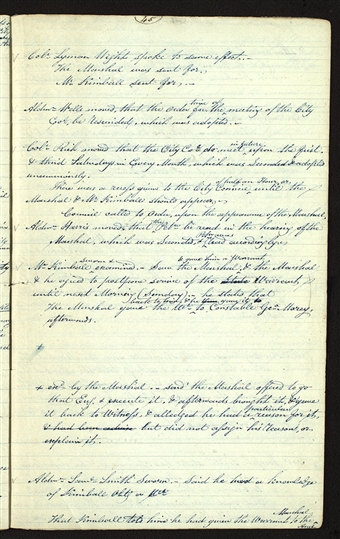 45
Col. Lyman Wight spoke to same effect.
The Marshal was sent for.
Mr Kimball sent for,
Aldn. Wells moved, that the Order time on the meeting of the City
Col. be rescinded, which was adopted.
Col. Rich moved that the City Co. do meet, in future upon the first
& third Saturdays in Every Month, which was seconded & adopted
unanimously.
There was a recess given to the City Council, of half an Hour, or until the
Marshal & Mr Kimball should appear.
Council called to Order, upon the appearance of the Marshal,
Aldn. Harris moved, that the be read in the hearing of the
Marshal, which was seconded, & read accordingly.
Mr Kimball sworn & examined. Saw the Marshal, & gave him a Warrant, & the Marshal
& he agreed to postpone service of the State Warrant,
until next Morning (Sunday) he stated that
The Marshal gave the Wt. to Constable Geo. Morey,
afterwards.
x exd. by the Marshal. said the Marshal offered to go
that Eve. & execute it, & afterwards brought it, & gave
it back to Witness, & alledged he had a particular reason for it,
& had but did not assign his reasons, or
explain it.
Aldn. Saml. Smith Sworn. said he had a knowledge
of Kimball
That Kimball told him he had given the Warrant to the Marshal